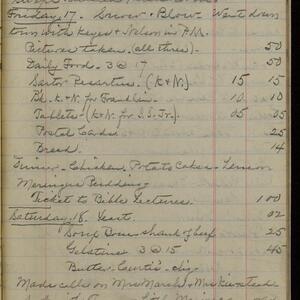 Friday 17. Snow & Blow. Went down
town with Keyes & Nelson in P.M.
Pictures taken (all three). 50
Daily Food. 3 @ 17 50
Sartor Resartus. (K & N.) 15 15
Bk. K. & N. for Franklin. 10 10
Tablets - (K & N. for S.S. Jr.) 05 05
Postal Cards 25
Bread. 14
Dinner - Chicken, Potato Cakes - Lemon
Meringue Pudding.
Ticket to Bible Lectures. 1 00
Saturday 18. Yeast. 02
Soup Bone - shank of beef 25
Gelatine 3 @ 15 45
Butter - Curtis -
Made calls on Mrs Marsh - Mrs